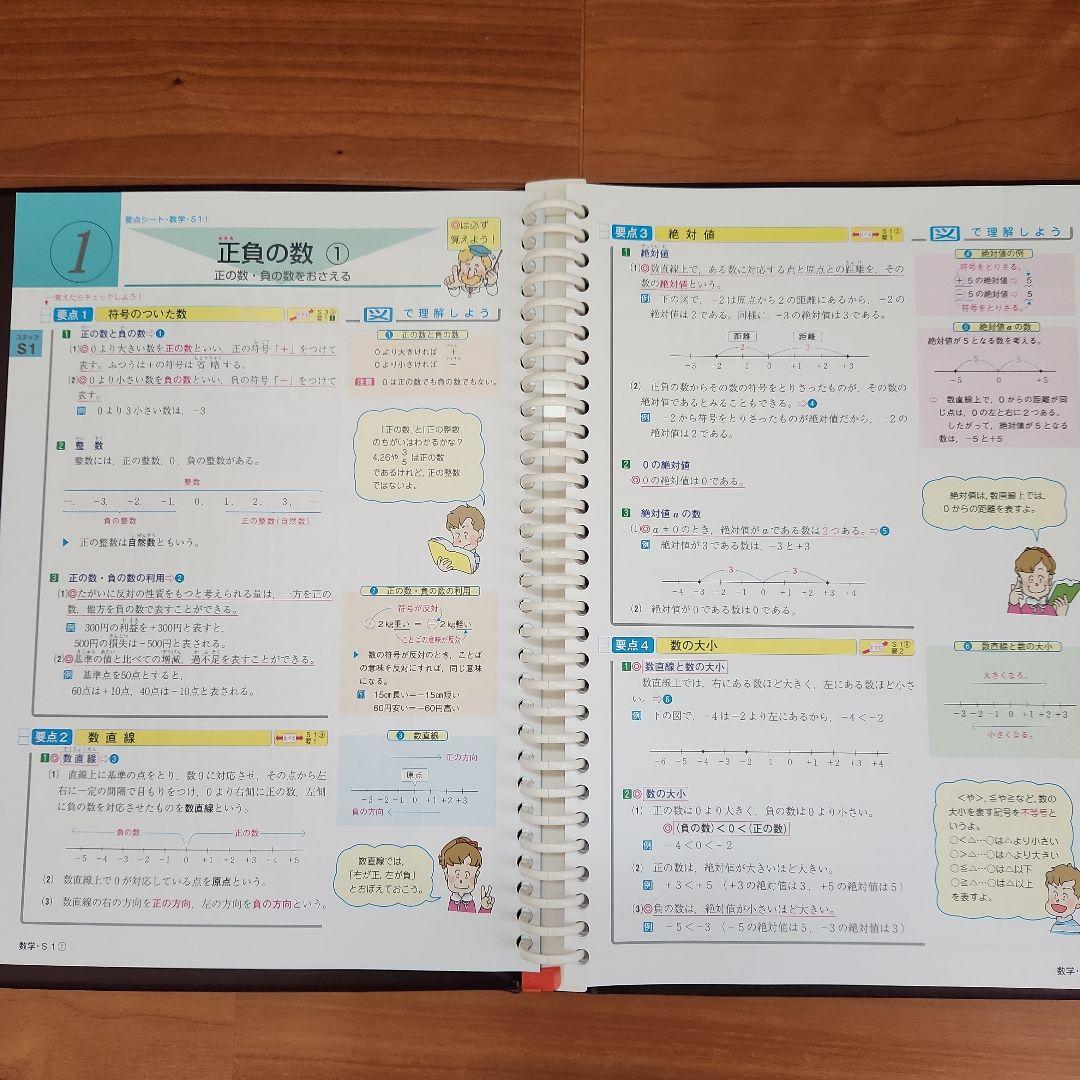 要点シート・数学・S1①
1
★★★
正負の数 ①
正の数・負の数をおさえる
◎は必ず
覚えよう！
覚えたらチェックしよう！
ステップ
S1
要点1 符号のついた数
図で理解しよう
1 正の数と負の数⇨❶
(1)◎0より大きい数を正の数といい，正の符号「＋」をつけて
表す。ふつうは＋の符号は省略する。
(2)◎0より小さい数を負の数といい，負の符号「－」をつけて
表す。
例 0より3小さい数は，－3
2 整数
整数には，正の整数，0，負の整数がある。
整数
…, －3, －2, －1, 0, 1, 2, 3, …
負の整数 正の整数(自然数)
▶ 正の整数は自然数ともいう。
3 正の数・負の数の利用⇨❷
(1)◎たがいに反対の性質をもつと考えられる量は，一方を正の
数，他方を負の数で表すことができる。
例 300円の利益を＋300円と表すと，
500円の損失は－500円と表される。
(2)◎基準の値と比べての増減，過不足を表すことができる。
例 基準点を50点とすると，
60点は＋10点，40点は－10点と表される。
❶ 正の数と負の数
0より大きければ ＋
0より小さければ －
注意 0は正の数でも負の数でもない。
「正の数」と「正の整数」
のちがいはわかるかな？
4.26や3/5は正の数
であるけれど，正の整数
ではないよ。
❷ 正の数・負の数の利用
符号が反対
＋2kg重い＝－2kg軽い
ことばの意味が反対
▶ 数の符号が反対のとき，ことば
の意味を反対にすれば，同じ意味
になる。
例 15cm長い＝－15cm短い
60円安い＝－60円高い
要点2 数直線
1◎数直線⇨❸
(1) 直線上に基準の点をとり，数0に対応させ，その点から左
右に一定の間隔で目もりをつけ，0より右側に正の数，左側
に負の数を対応させたものを数直線という。
負の数 正の数
－5 －4 －3 －2 －1 0 +1 +2 +3 +4 +5
(2) 数直線上で0が対応している点を原点という。
(3) 数直線の右の方向を正の方向，左の方向を負の方向という。
❸ 数直線
正の方向
原点
－3 －2 －1 0 +1 +2 +3
負の方向
数直線では，
「右が正，左が負」
とおぼえておこう。
数学・S1①
要点3 絶対値
図で理解しよう
1 絶対値
(1)◎数直線上で，ある数に対応する点と原点との距離を，その
数の絶対値という。
例 下の図で，－2は原点から2の距離にあるから，－2の
絶対値は2である。同様に，＋3の絶対値は3である。
距離 距離
2 3
－3 －2 －1 0 +1 +2 +3
(2) 正負の数からその数の符号をとりさったものが，その数の
絶対値であるとみることもできる。⇨❹
例 －2から符号をとりさったものが絶対値だから，－2の
絶対値は2である。
2 0の絶対値
◎0の絶対値は0である。
3 絶対値aの数
(1)◎a≠0のとき，絶対値がaである数は2つある。⇨❺
例 絶対値が3である数は，－3と＋3
3 3
－4 －3 －2 －1 0 +1 +2 +3 +4
(2) 絶対値が0である数は0である。
❹ 絶対値の例
符号をとりさる。
＋5の絶対値⇨ 5
－5の絶対値⇨ 5
符号をとりさる。
❺ 絶対値aの数
絶対値が5となる数を考える。
5 5
－5 0 +5
⇨ 数直線上で，0からの距離が同
じ点は，0の左と右に2つある。
したがって，絶対値が5となる
数は，－5と＋5
絶対値は，数直線上では，
0からの距離を表すよ。
要点4 数の大小
1◎数直線と数の大小
数直線上では，右にある数ほど大きく，左にある数ほど小さ
い。⇨❻
例 下の図で，－4は－2より左にあるから，－4＜－2
－6 －5 －4 －3 －2 －1 0 +1 +2 +3 +4
2◎数の大小
(1) 正の数は0より大きく，負の数は0より小さい。
◎(負の数)＜0＜(正の数)
例 －4＜0＜＋2
(2) 正の数は，絶対値が大きいほど大きい。
例 ＋3＜＋5 (＋3の絶対値は3，＋5の絶対値は5)
(3)◎負の数は，絶対値が小さいほど大きい。
例 －5＜－3 (－5の絶対値は5，－3の絶対値は3)
❻ 数直線と数の大小
大きくなる。
－3 －2 －1 0 +1 +2 +3
小さくなる。
＜や＞，≦や≧など，数の
大小を表す記号を不等号と
いうよ。
○＜△…○は△より小さい
○＞△…○は△より大きい
○≦△…○は△以下
○≧△…○は△以上
を表すよ。
数学・